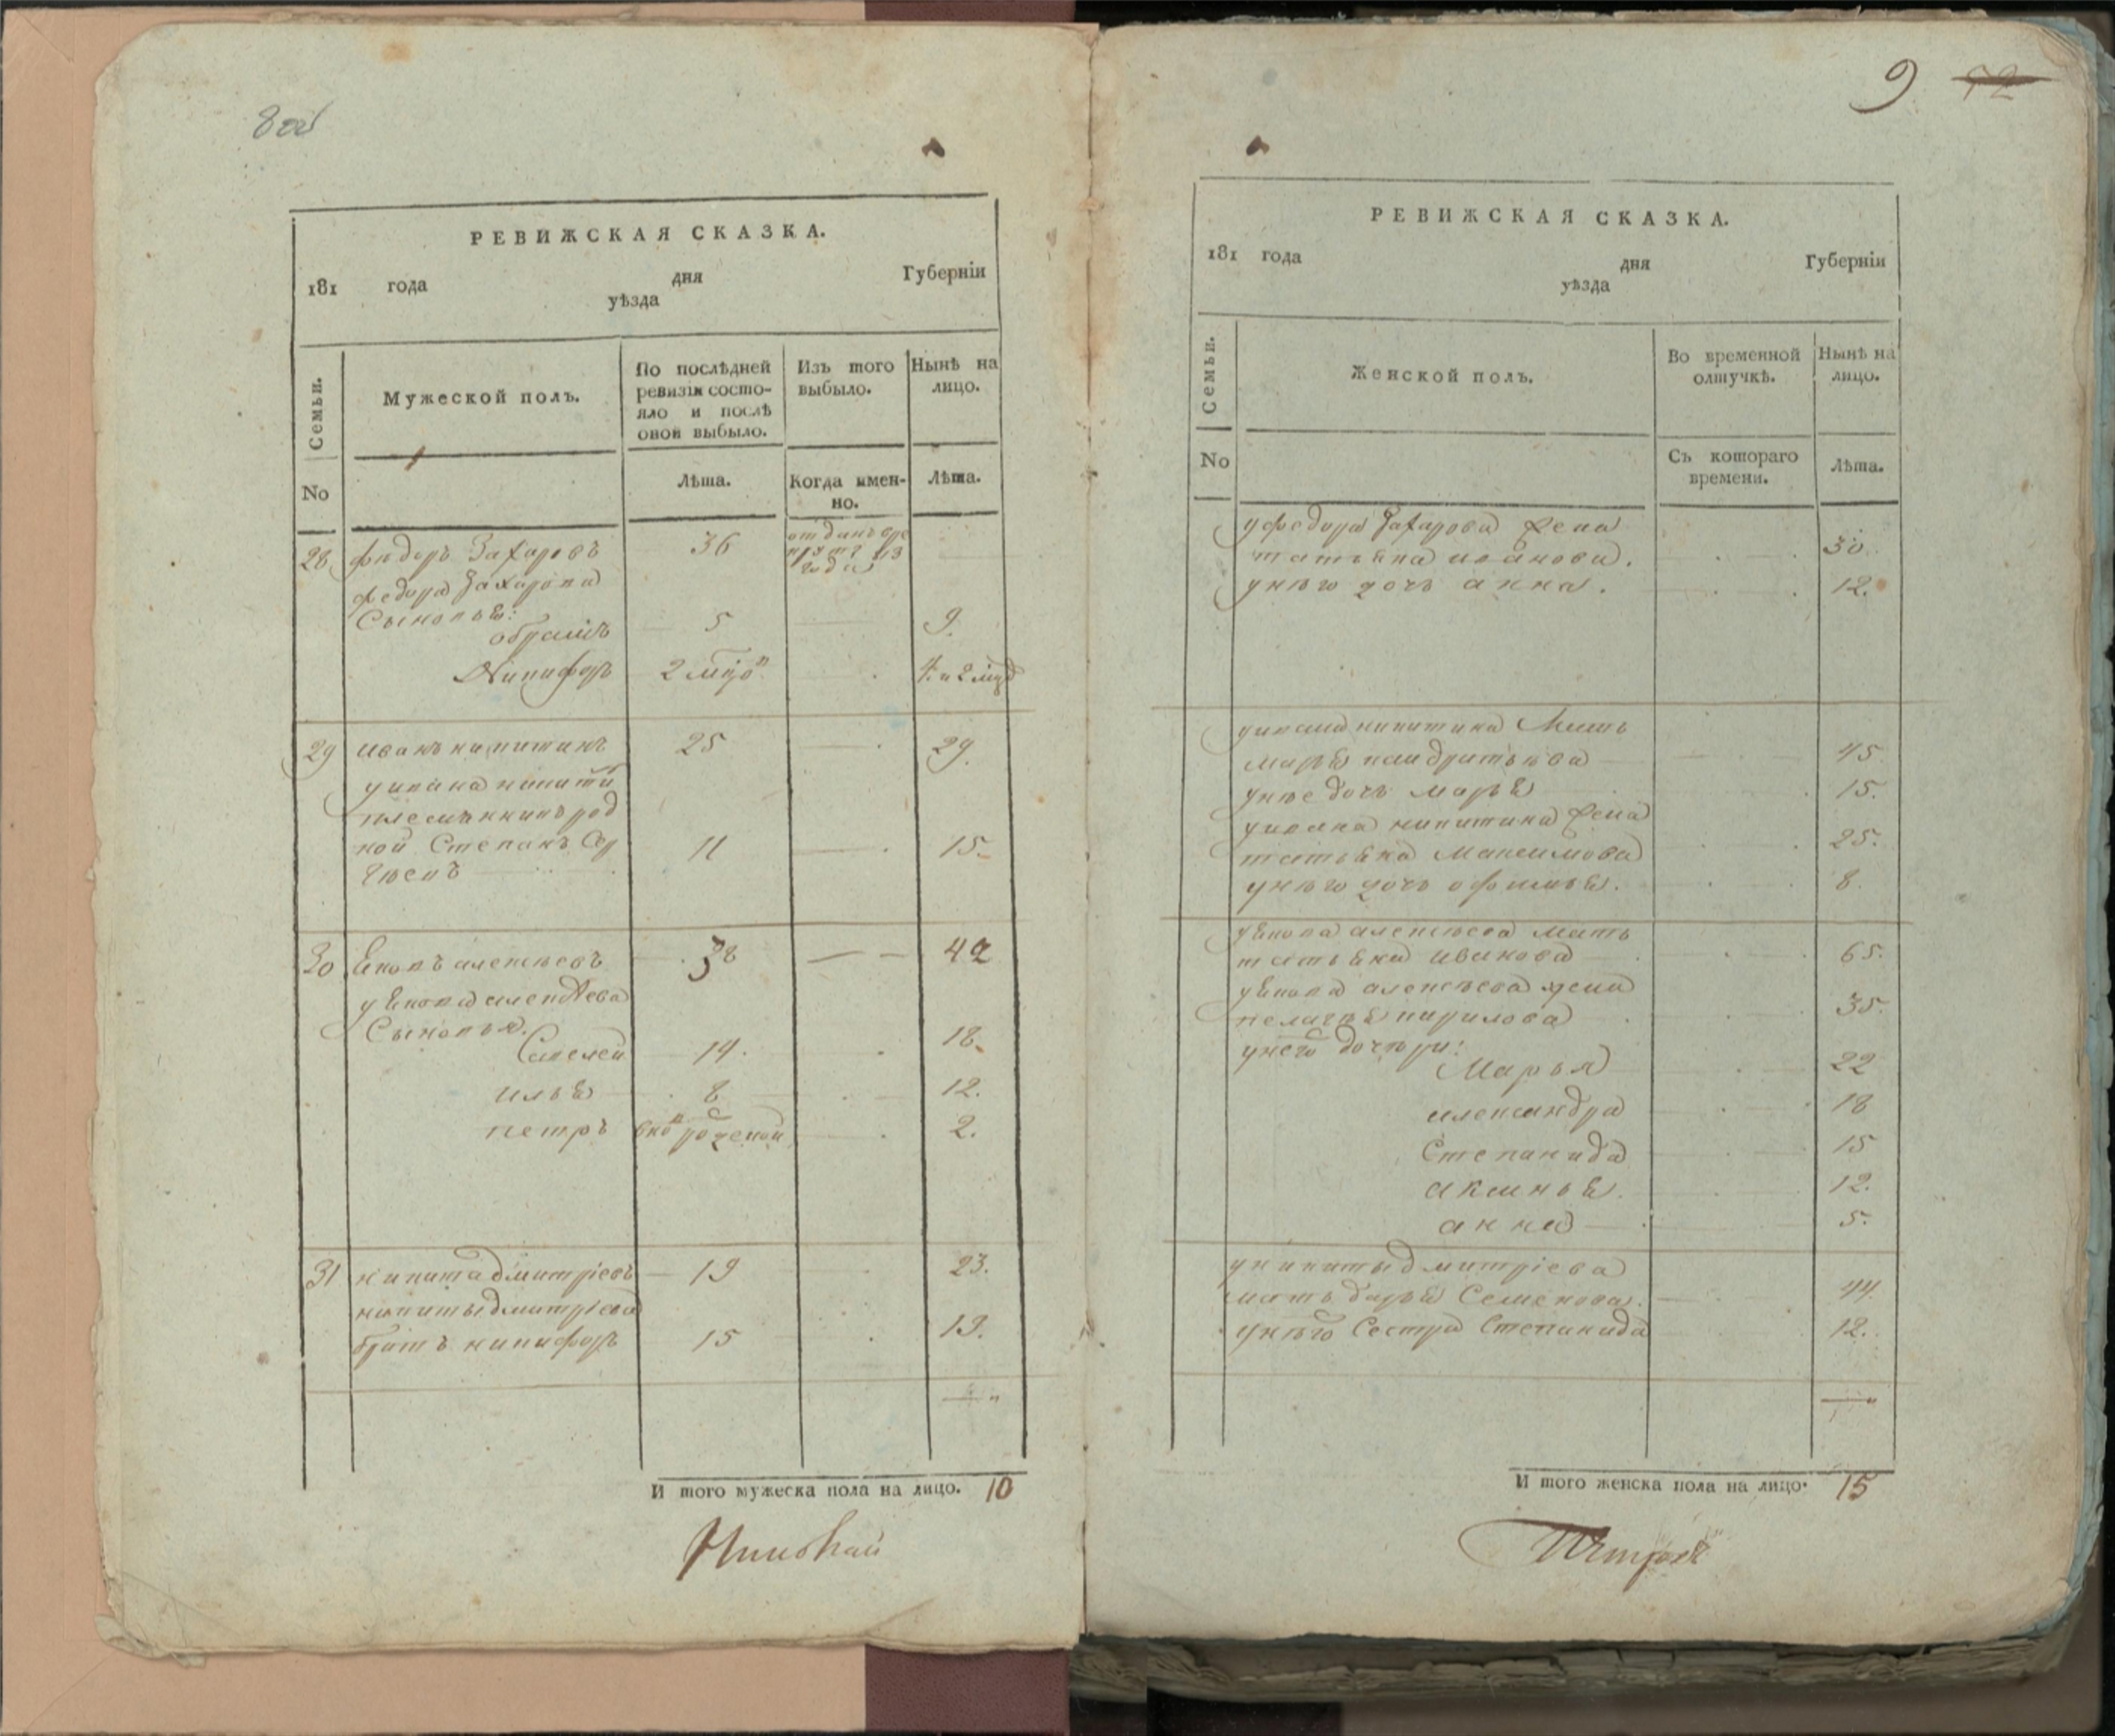 8об
РЕВИЖСКАЯ СКАЗКА.
181 года дня Губерніи
уѣзда
Семьи. Мужеской полъ. По послѣдней ревизіи состояло и послѣ оной выбыло. Изъ того выбыло. Нынѣ на лицо.
No Лѣта. Когда имен-но. Лѣта.
28 федоръ Захаровъ 36 отданъ вре
круты 813
года
федора Захарова
Сыновья:
обрамъ 5 9.
Никифоръ 2 мцо 4 и 2 мцо
29 иванъ никитинъ 25 29.
у ивана никити
племянникъ род
ной Степанъ Сер 11 15.
гѣевъ
30 Яковъ алексѣевъ 38 42
у Якова алексѣева
Сыновья.
Савелей 14. 18.
илья 8 12.
петръ вно рожденой 2.
31 никита дмитріевъ 19 23.
никиты дмитріева
братъ никифоръ 15 19.
И того мужеска пола на лицо. 10
9 72
РЕВИЖСКАЯ СКАЗКА.
181 года дня Губерніи
уѣзда
Семьи. Женской полъ. Во временной отлучкѣ. Нынѣ на лицо.
No Съ котораго времени. Лѣта.
у федора Захарова жена
татьяна иванова. 30.
у нѣго дочь анна. 12.
у ивана никитина Мать
марья кандратьева 45
у нѣе дочь марья 15.
у ивана никитина жена
татьяна Максимова 25.
у нѣго дочь офимья. 8.
у Якова алексѣева мать
татьяна иванова 65.
у Якова алексѣева жена
пелагѣя кирилова 35.
у него дочѣри:
Марья 22
александра 18
Степанида 15
аксинья. 12.
анна 5.
у никиты дмитріева
мать дарья Семенова. 44.
у нѣго Сестра Степанида 12.
И того женска пола на лицо. 15